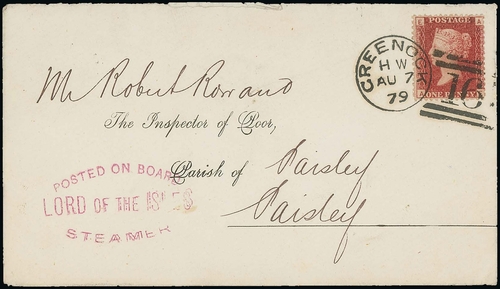 POSTAGE
L A
A L
ONE PENNY
GREENOCK
H W
AU 7
79
163
Mr Robert Rowand
The Inspector of Poor,
Parish of Paisley
Paisley
POSTED ON BOARD
LORD OF THE ISLES
STEAMER